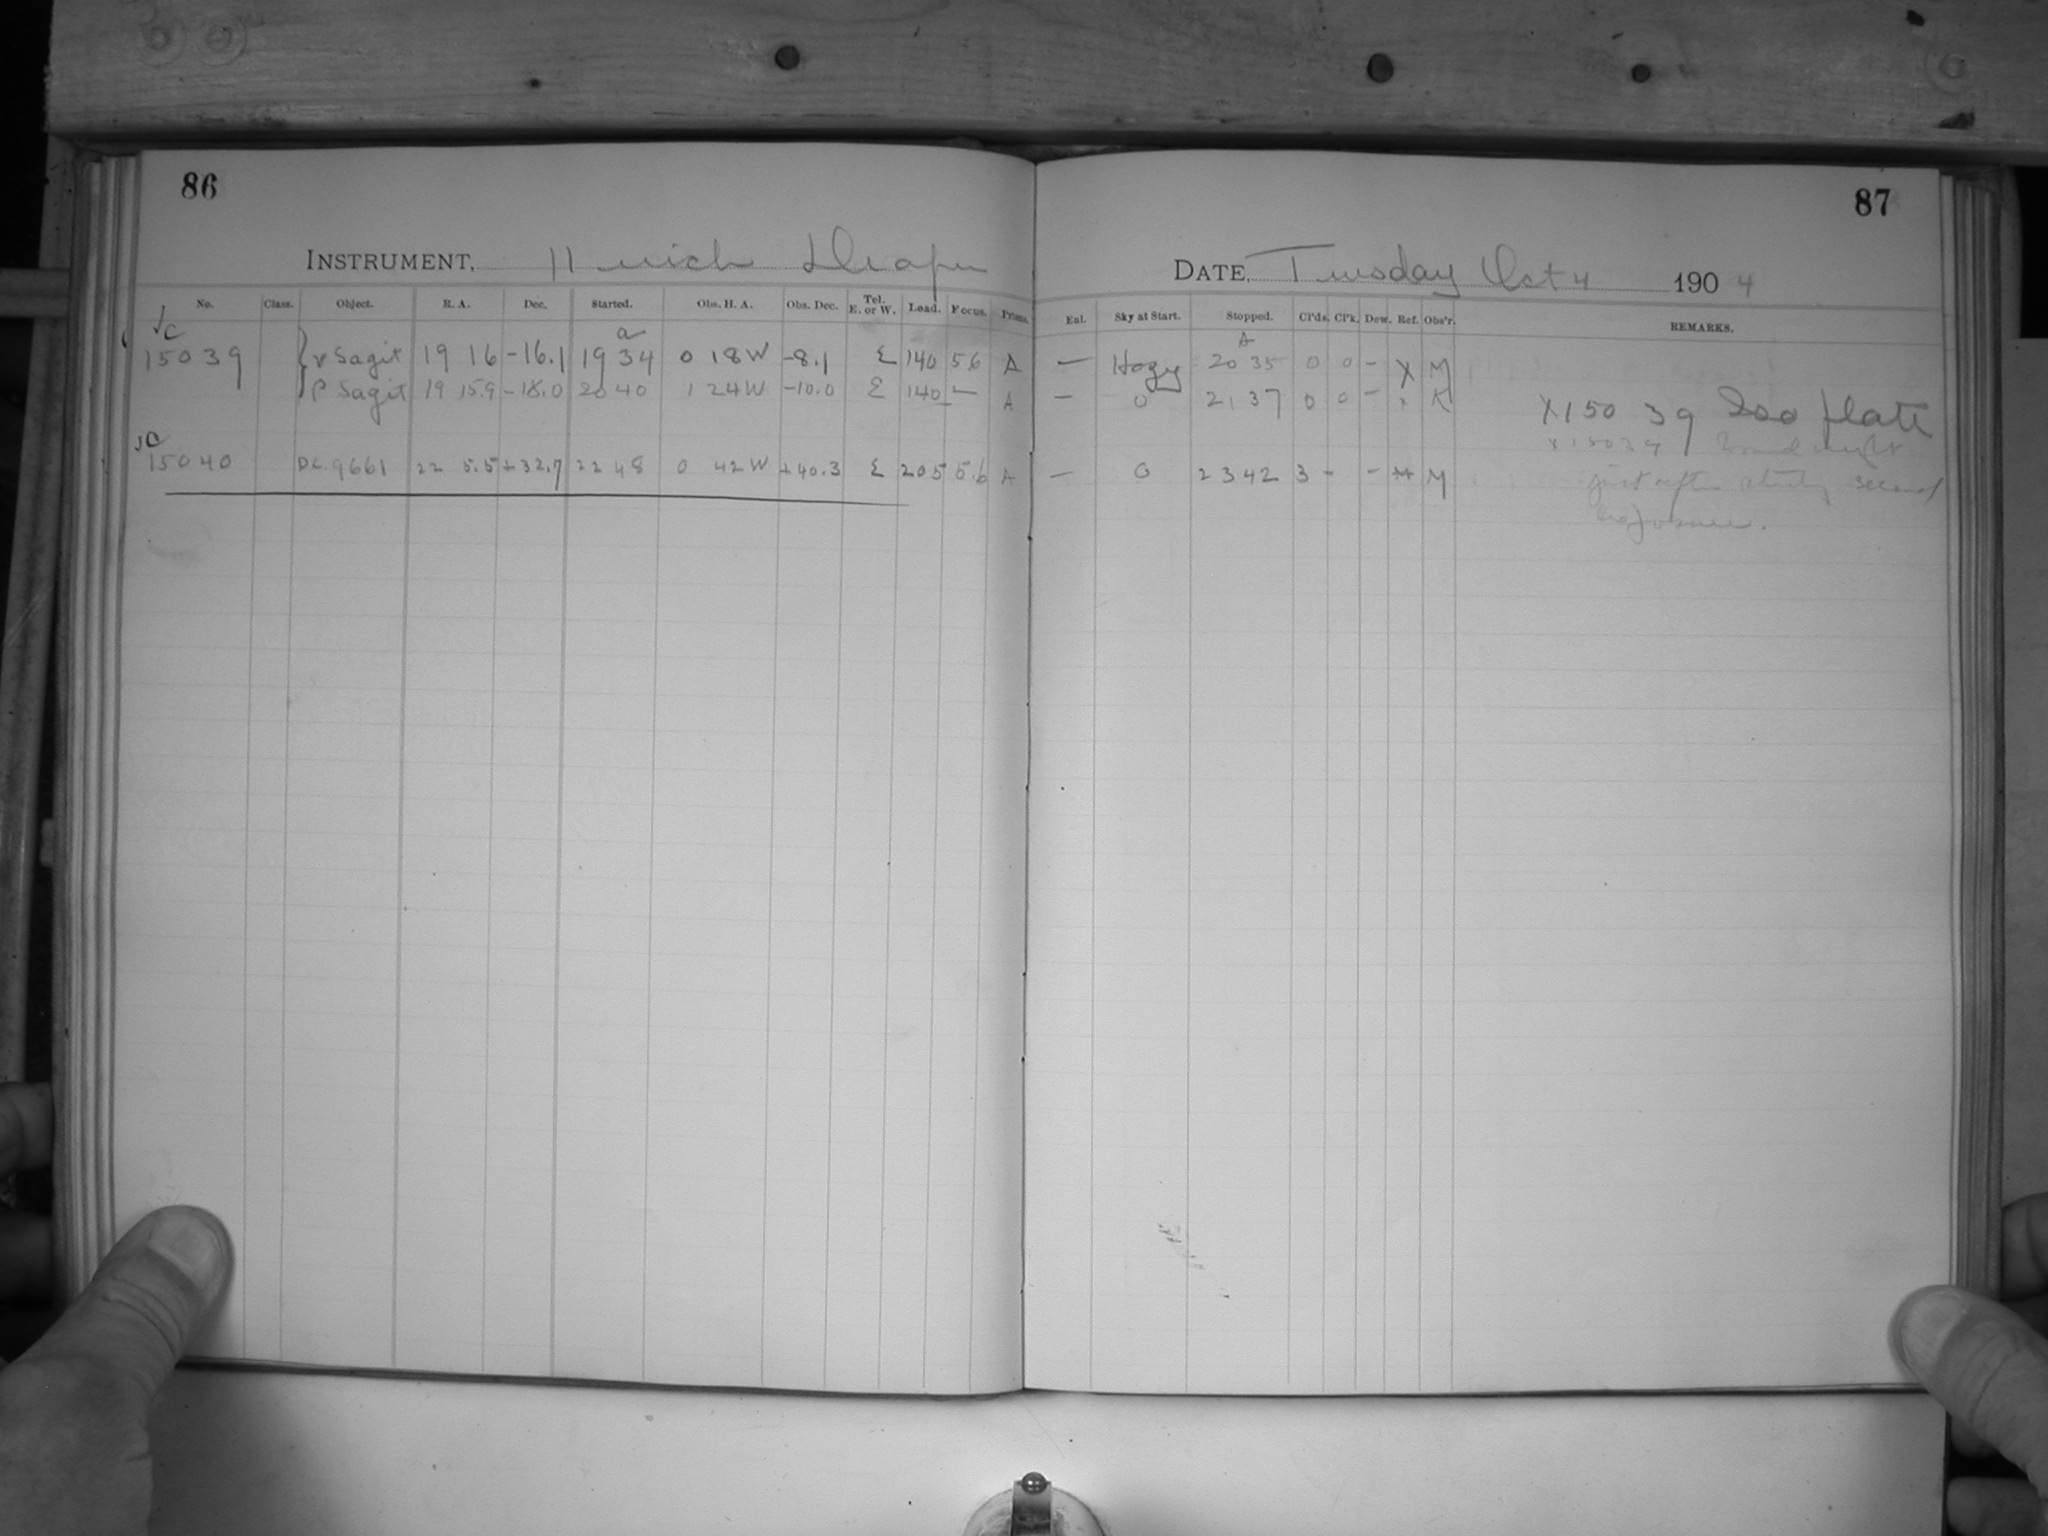 86
INSTRUMENT, 11 inch Draper
No. Class. Object. R. A. Dec. Started. Obs. H. A. Obs. Dec. Tel. E. or W. Load. Focus. Prisms.
C a
15039 { ν Sagit 19 16 -16.1 19 34 0 18 W -8.1 E 140 5.6 A
ρ Sagit 19 15.9 -18.0 20 40 1 24 W -10.0 E 140 — A
C
15040 DC.9661 22 5.5 +32.7 22 48 0 42 W +40.3 E 205 5.6 A
87
DATE, Tuesday Oct 4 1904
Ent. Sky at Start. Stopped. Cl'ds. Cl'k. Dew. Ref. Obs'r. REMARKS.
— Hazy 20 35 0 0 - X M
— 0 21 37 0 0 - x K
X 15039 Iso plate
x 15039
— 0 23 42 3 - - M
just after second
exposure.